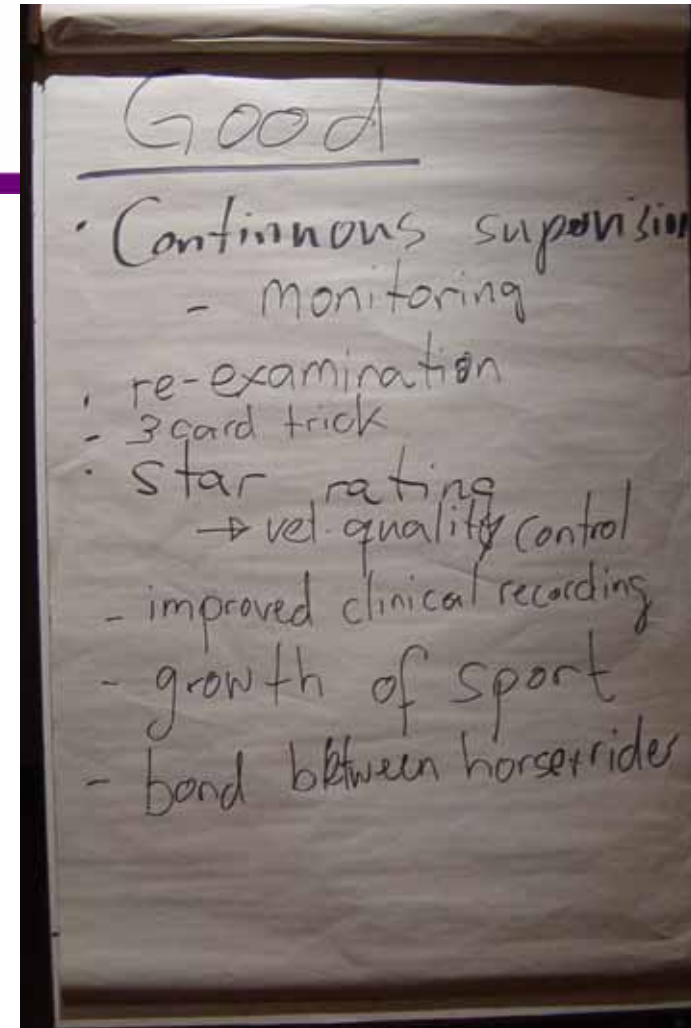 Good
· Continuous supervision
- monitoring
· re-examination
- 3 card trick
· star rating
→ vet. quality control
- improved clinical recording
- growth of sport
- bond between horse+rider